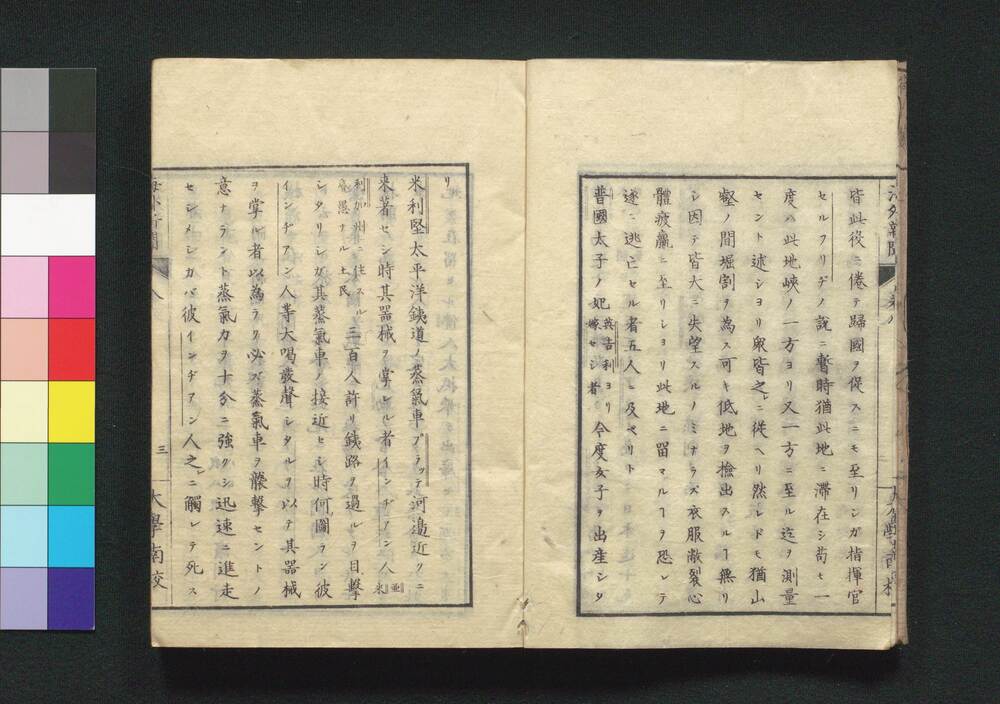 皆此役ニ倦テ歸國ヲ促スニモ至リシガ指揮官
セルフリヂノ說ニ暫時猶此地ニ滯在シ苟モ一
度ハ此地峽ノ一方ヨリ又一方ニ至ル迄ヲ測量
セント述シヨリ衆皆之ニ從ヘリ然レドモ猶山
壑ノ間堀割ヲ為ス可キ低地ヲ撿出スルヿ無リ
シ因テ皆大ニ失望スルノミナラズ衣服敝裂心
體疲羸ニ至リシヨリ此地ニ留マルヿヲ恐レテ
遂ニ逃亡セル者五人ニ及ベリト
普國太子ノ妃英吉利ヨリ嫁セシ者今度女子ヲ出產シタ
リ
米利堅太平洋鐵道ノ蒸氣車プラッテ河邉近クニ
來著セシ時其器械ヲ掌レル者インヂアン人亜米
利加州ニ住スル愚ナル土民三百人許リ鐵路ヲ過ルヲ目擊
シタリシガ其蒸氣車ノ接近セシ時何圖ラン彼
インヂアン人等大喝發聲シタルヲ以テ其器械
ヲ掌ル者以為ラク必ズ蒸氣車ヲ襲擊セントノ
意ナラント蒸氣力ヲ十分ニ強クシ迅速ニ進走
セシメシカバ彼インヂアン人之ニ觸レテ死ス
三
大學南校